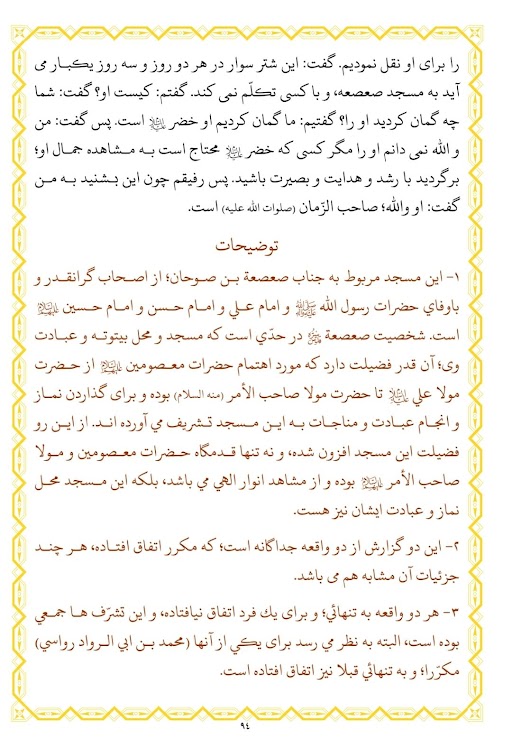 را برای او نقل نمودیم. گفت: این شتر سوار در هر دو روز و سه روز یکبار می
آید به مسجد صعصعه، و با کسی تکلّم نمی کند. گفتم: کیست او؟ گفت: شما
چه گمان کردید او را؟ گفتیم: ما گمان کردیم او خضر علیه السلام است. پس گفت: من
و الله نمی دانم او را مگر کسی که خضر علیه السلام محتاج است به مشاهده جمال او؛
برگردید با رشد و هدایت و بصیرت باشید. پس رفیقم چون این بشنید به من
گفت: او والله؛ صاحب الزّمان (صلوات الله علیه) است.
توضیحات
۱- این مسجد مربوط به جناب صعصعة بن صوحان؛ از اصحاب گرانقدر و
باوفاي حضرات رسول الله ﷺ و امام علي و امام حسن و امام حسین
است. شخصیت صعصعة در حدّي است که مسجد و محل بیتوته و عبادت
وی؛ آن قدر فضیلت دارد که مورد اهتمام حضرات معصومین از حضرت
مولا علي تا حضرت مولا صاحب الأمر (منه السلام) بوده و برای گذاردن نماز
و انجام عبادت و مناجات به این مسجد تشریف مي آورده اند. از این رو
فضیلت این مسجد افزون شده، و نه تنها قدمگاه حضرات معصومین و مولا
صاحب الأمر بوده و از مشاهد انوار الهي مي باشد، بلکه این مسجد محل
نماز و عبادت ایشان نیز هست.
۲- این دو گزارش از دو واقعه جداگانه است؛ که مکرر اتفاق افتاده، هر چند
جزئیات آن مشابه هم می باشد.
۳- هر دو واقعه به تنهائي؛ و برای یك فرد اتفاق نیافتاده، و این تشرّف ها جمعي
بوده است، البته به نظر مي رسد برای یکي از آنها (محمد بن ابي الرواد رواسي)
مکرّرا؛ و به تنهائي قبلا نیز اتفاق افتاده است.
۹٤